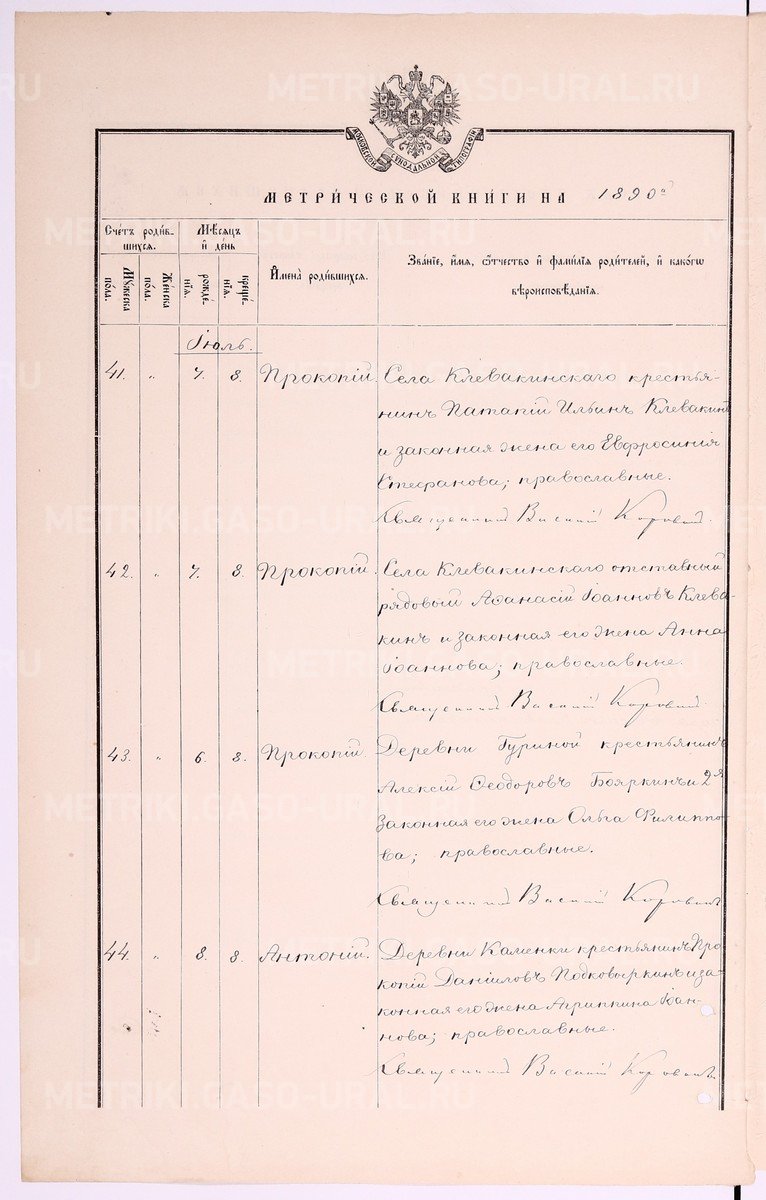 МОСКОВСКОЙ СѴНОДАЛЬНОЙ ТИПОГРАФІИ
МЕТРИ́ЧЕСКОЙ КНИ́ГИ НА 1890 г.
Сче́тъ роди́в-
шихся.
Му́жеска
по́ла.
Же́нска
по́ла.
Мѣ́сяцъ
и҆ де́нь
рожде́-
нїѧ.
креще́-
нїѧ.
И҆мена̀ роди́вшихся.
Зва́нїе, и҆́мѧ, ѻ҆́тчество и҆ фами́лїѧ роди́телей, и҆ како́гѡ
вѣроисповѣ́данїѧ.
Іюль.
41. " 7. 8. Прокопій. Села Клевакинскаго крестья-
нинъ Патапій Ильинъ Клевакинъ
и законная жена его Евфросинія
Стефанова; православные.
Священникъ Василій Коровинъ
42. " 7. 8. Прокопій. Села Клевакинскаго отставный
рядовый Аѳанасій Іоанновъ Клева-
кинъ и законная его жена Анна
Іоаннова; православные.
Священникъ Василій Коровинъ
43. " 6. 8. Прокопій. Деревни Гуриной крестьянинъ
Алексій Ѳеодоровъ Бояркинъ и 2я
законная его жена Ольга Филиппо-
ва; православные.
Священникъ Василій Коровинъ
44. " 8. 8. Антоній. Деревни Каменки крестьянинъ Про
копій Даніиловъ Подковыркинъ и за-
конная его жена Агриппина Іоан-
нова; православные.
Священникъ Василій Коровинъ
METRIKI.GASO-URAL.RU